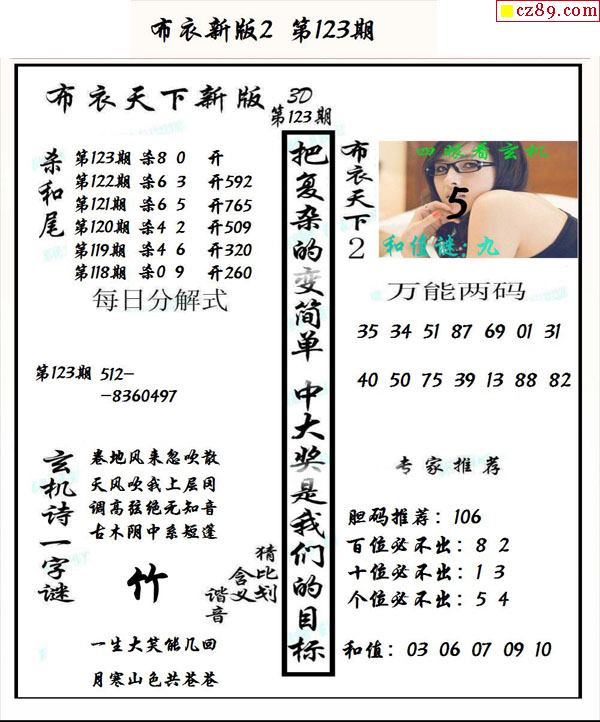 cz89.com
布衣新版2 第123期
布衣天下新版 3D
第123期
杀和尾
第123期 杀8 0 开
第122期 杀6 3 开592
第121期 杀6 5 开765
第120期 杀4 2 开509
第119期 杀4 6 开320
第118期 杀0 9 开260
每日分解式
第123期 512-
-8360497
玄机诗一字谜
卷地风来忽吹散
天风吹我上层冈
调高弦绝无知音
古木阴中系短蓬
竹
猜比划
含义
谐音
一生大笑能几回
月寒山色共苍苍
把复杂的变简单 中大奖是我们的目标
布衣天下2
四眼看玄机
5
和值谜:九
万能两码
35 34 51 87 69 01 31
40 50 75 39 13 88 82
专家推荐
胆码推荐：106
百位必不出：8 2
十位必不出：1 3
个位必不出：5 4
和值：03 06 07 09 10